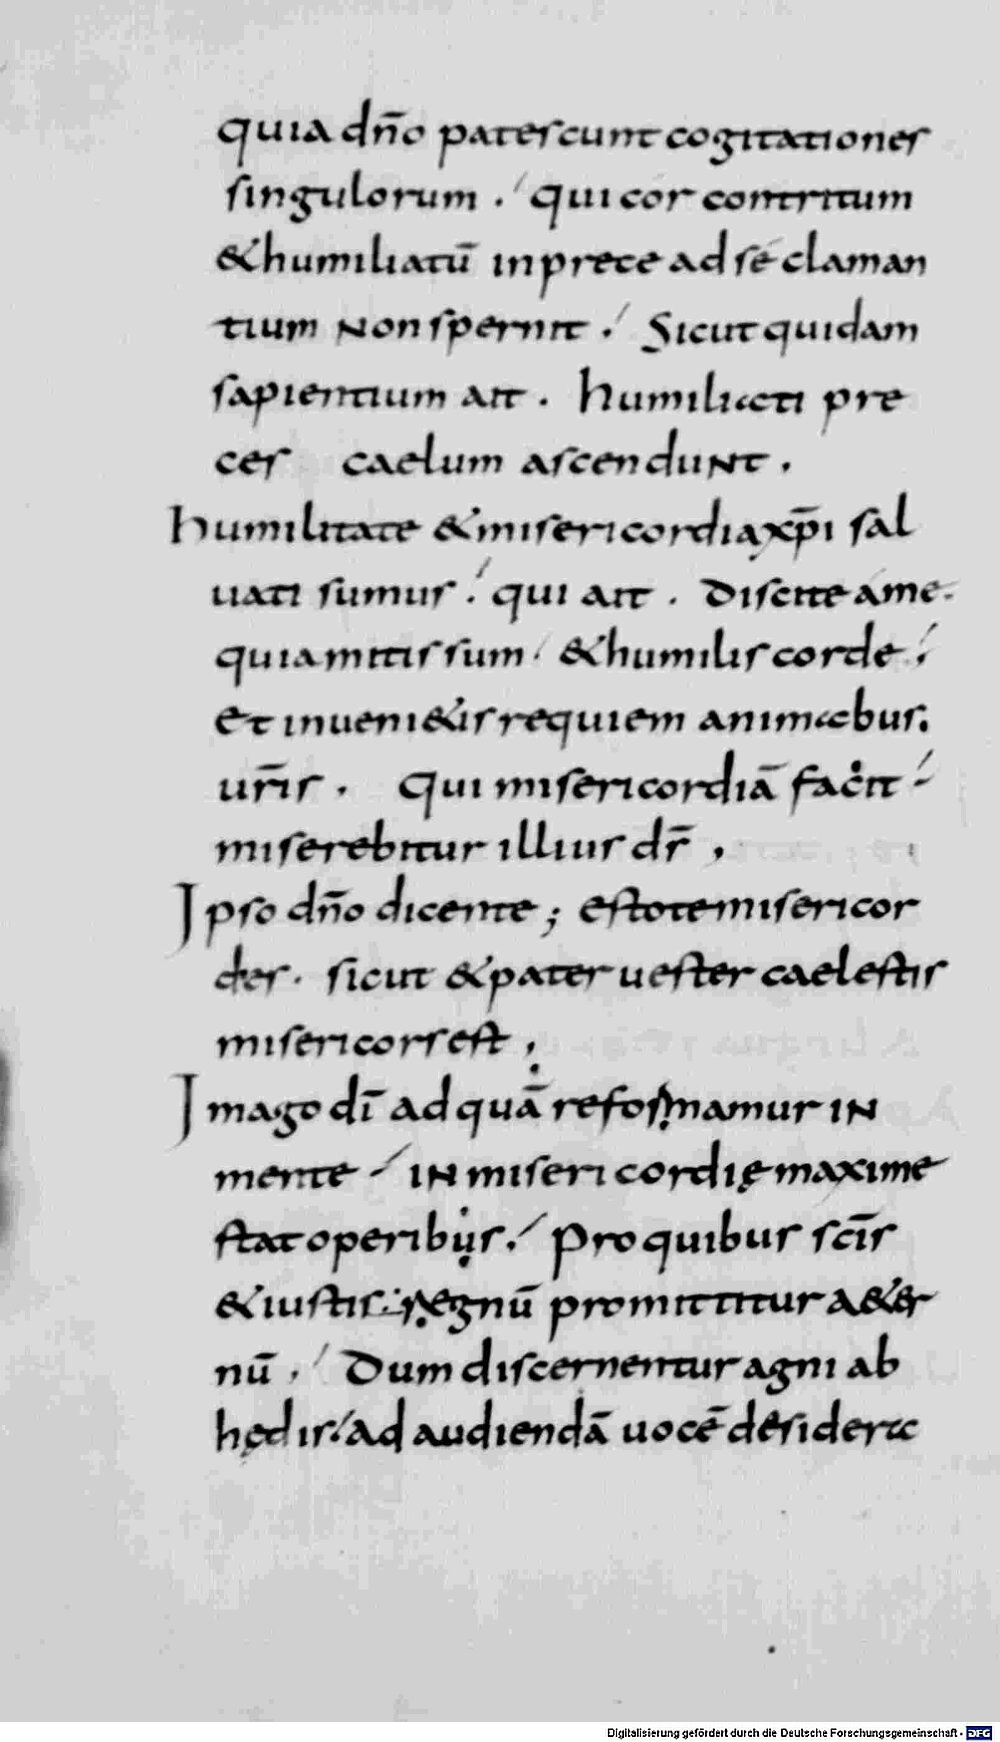 quia dño patescunt cogitationes
singulorum ./ qui cor contritum
&humiliatū in prece ad sé claman
tium Non spernit ./ Sicut quidam
sapientium ait . humiliati pre
ces caelum ascendunt .
humilitate & misericordia xp̄i sal
uati sumus ./ qui ait . Discite a me .
quia mitis sum / & humilis corde ./
Et inueni&is requiem animabus .
ur̄is . Qui misericordiā facit /
miserebitur illius ds̄ ,
Ipso dño dicente ; estote misericor
des . sicut & pater uester caelestis
misericors est ,
Imago dī ad quā reformamur in
mente / in misericordię maxime
stat operibus ./ Pro quibus sc̄is
& iustis regnū promittitur a&er
nū , / Dum discernentur agni ab
hędis / ad audiendā uocē desidera
Digitalisierung gefördert durch die Deutsche Forschungsgemeinschaft - DFG